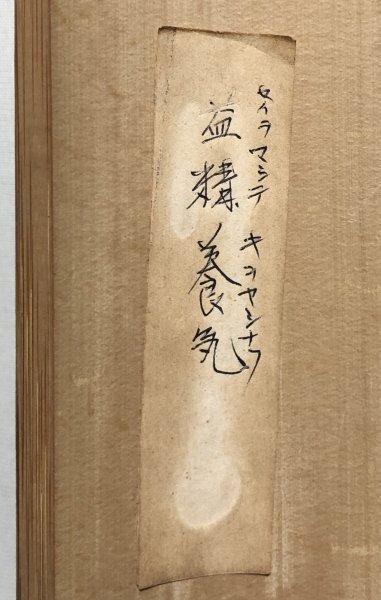 セイヲ マシテ キヲヤシナウ
益精養気